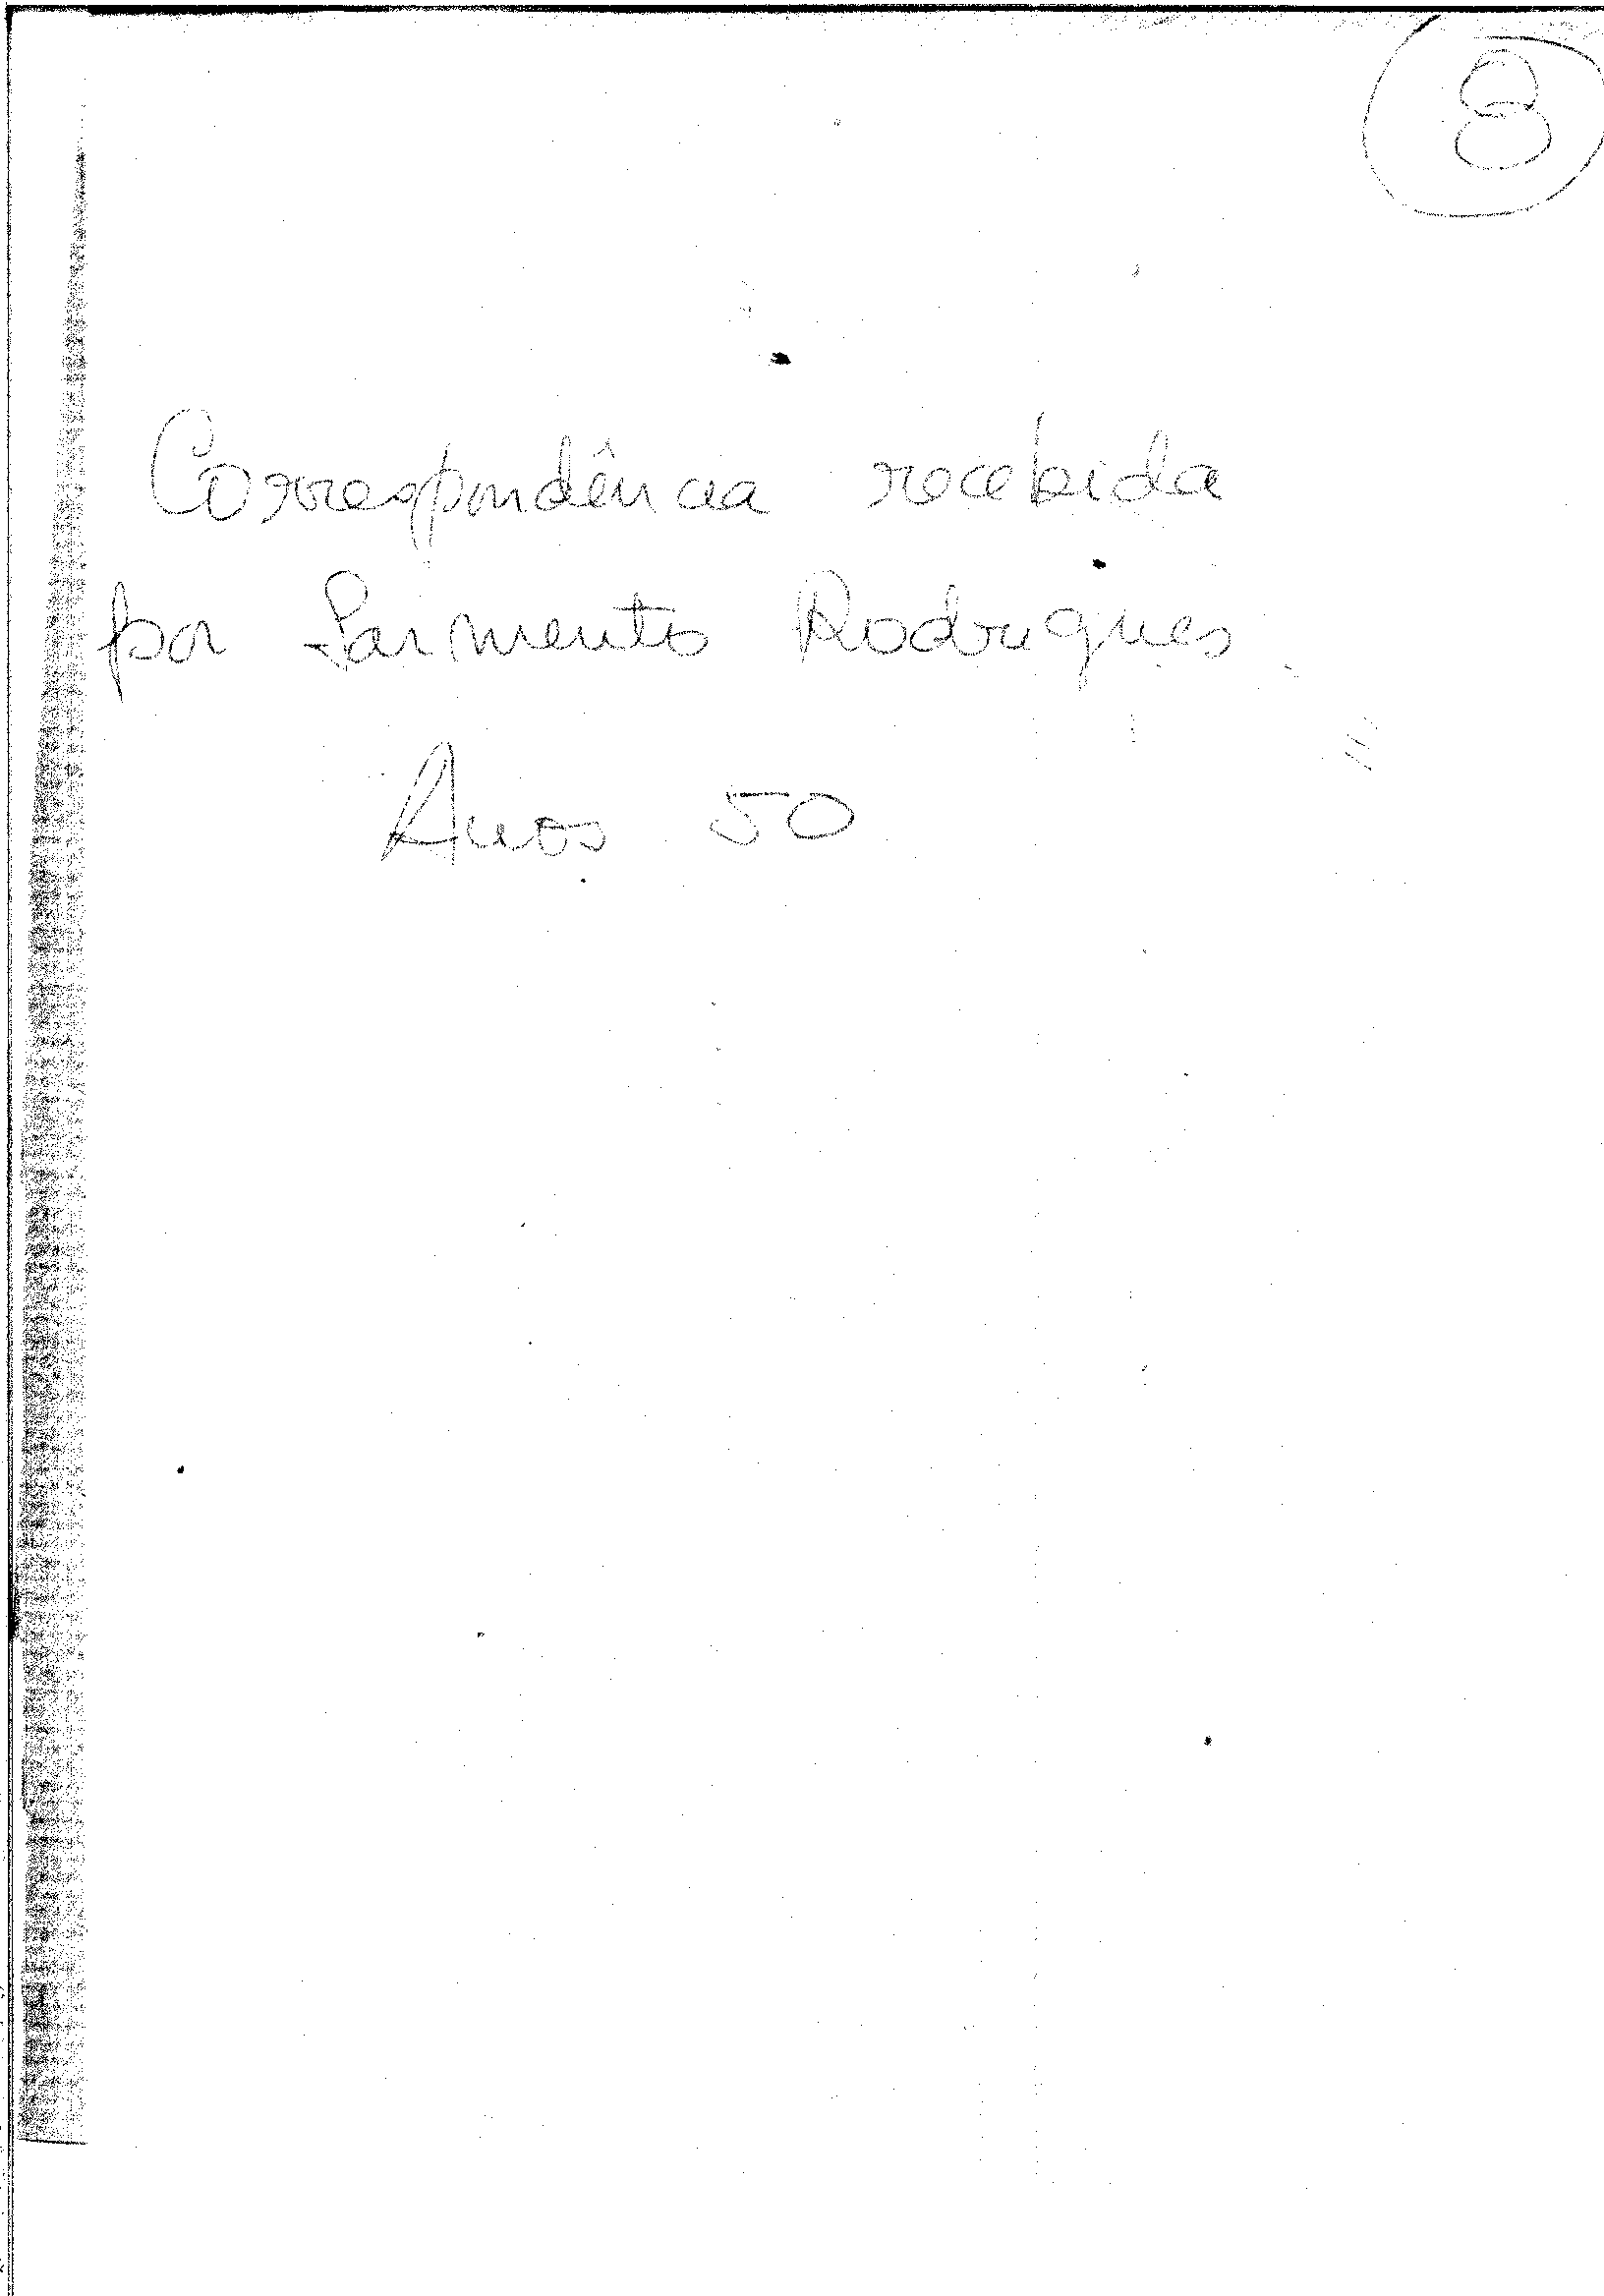 8
Correspondência recebida
por Sarmento Rodrigues
Anos 50